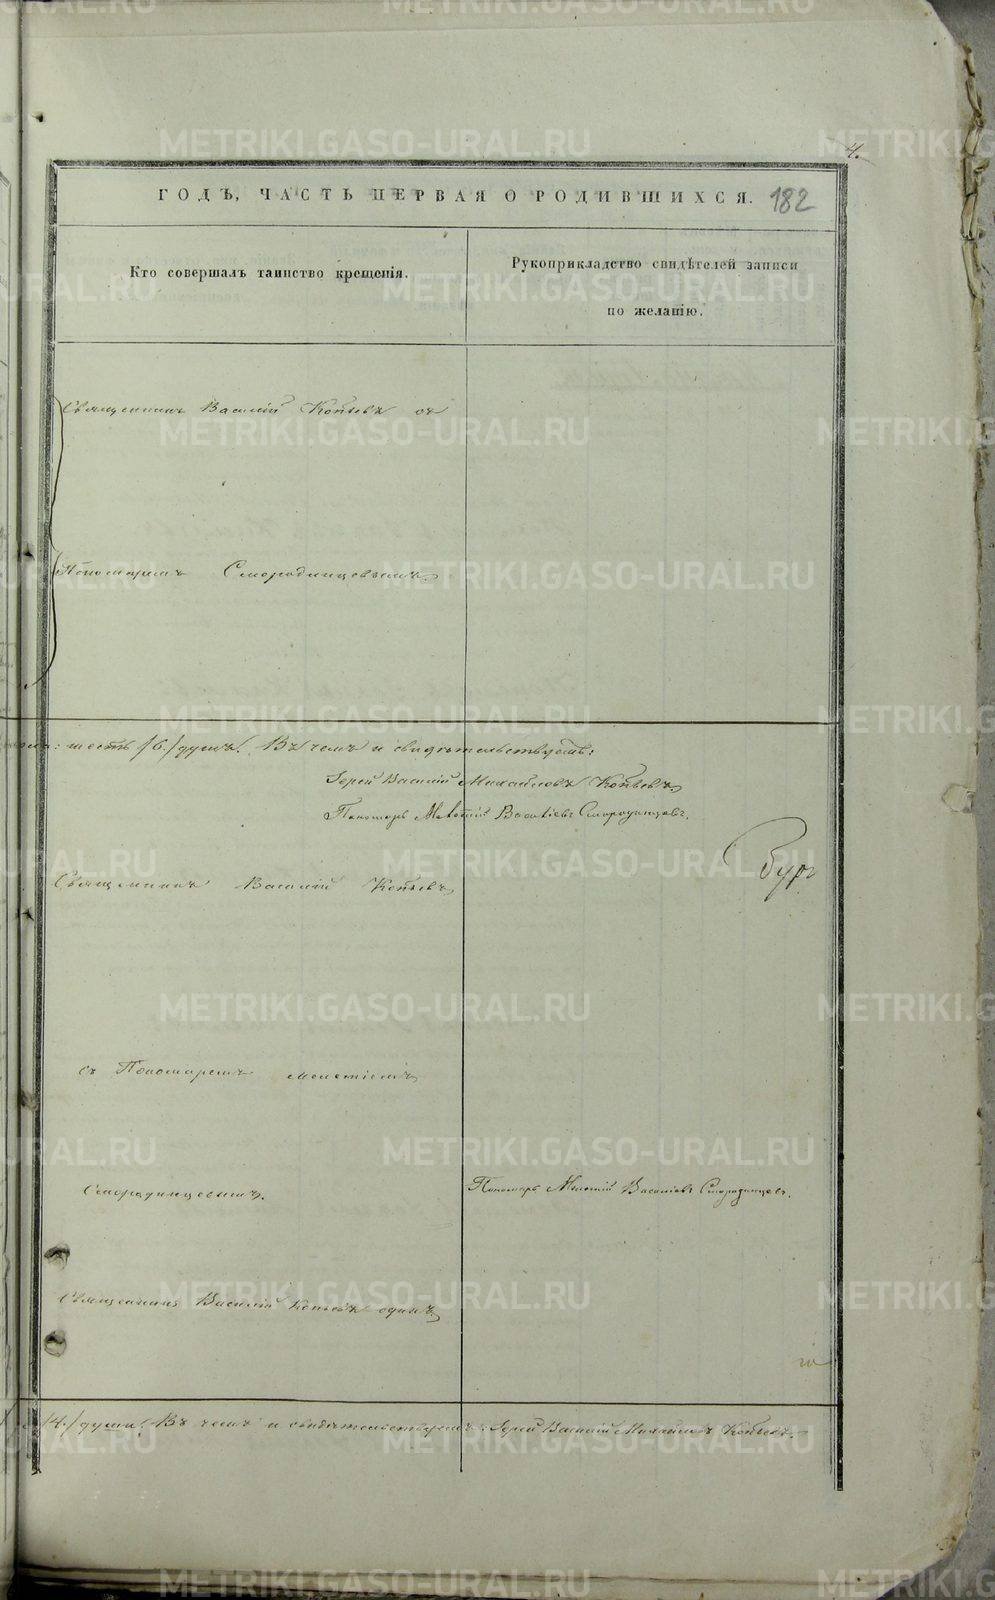 METRIKI.GASO-URAL.RU
4.
ГОДЪ, ЧАСТЬ ПЕРВАЯ О РОДИВШИХСЯ. 182
Кто совершалъ таинство крещенія.
Рукоприкладство свидѣтелей записи
по желанію.
Священникъ Василій Копьевъ съ
Пономаремъ Смородинцевымъ
шесть /6./ душъ. Въ чемъ и свидѣтельствуемъ:
Іерей Василій Михайловъ Копьевъ
Пономарь Мелетій Васильевъ Смородинцевъ.
Священникъ Василій Копьевъ
съ Пономаремъ Мелетіемъ
Смородинцевымъ.
Пономарь Мелетій Васильевъ Смородинцевъ.
Священникъ Василій Копьевъ одинъ
/4./ души. Въ чемъ и свидѣтельствуемъ: Іерей Василій Михайловъ Копьевъ.